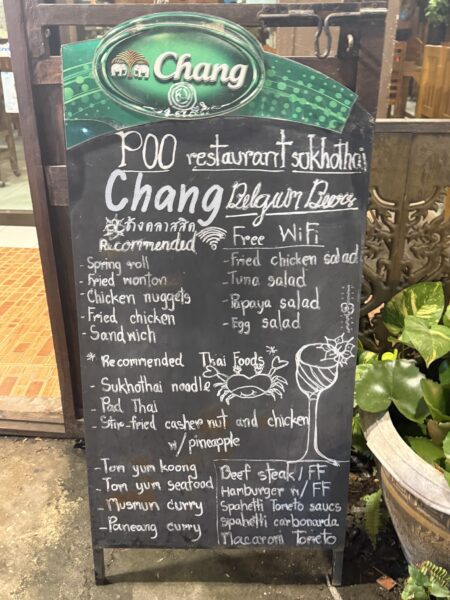 Chang
POO restaurant sokhothai
Chang Belgium Beers
ช้างคลาสสิค
Recommended Free WiFi
- Spring roll
- Fried wonton
- Chicken nuggets
- Fried chicken
- Sandwich
- Fried chicken salad
- Tuna salad
- Papaya salad
- Egg salad
* Recommended Thai Foods *
- Sukhothai noodle
- Pad Thai
- Stir-fried cashew nut and chicken
w/ pineapple
- Tom yum koong
- Tom yum seafood
- Musmun curry
- Paneang curry
Beef steak / FF
Hamburger w/ FF
Spahetti Tometo saucs
Spahetti carbonarda
Macaroni Tometo